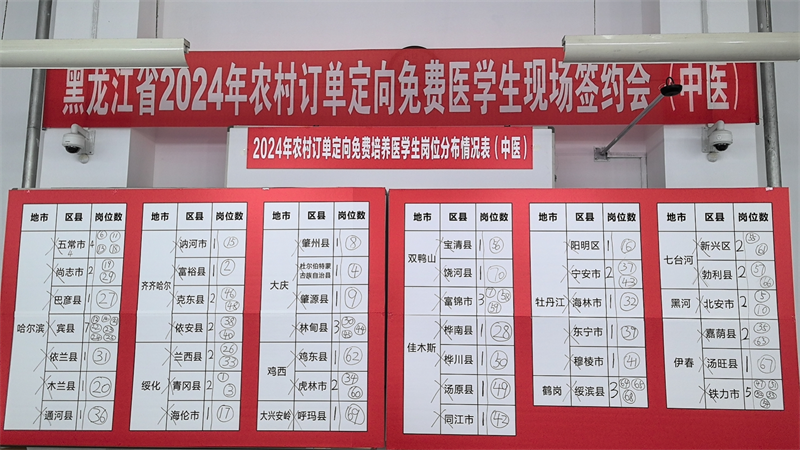 黑龙江省2024年农村订单定向免费医学生现场签约会（中医）
2024年农村订单定向免费培养医学生岗位分布情况表（中医）
地市 区县 岗位数
哈尔滨
五常市 4
尚志市 2 19 29
巴彦县 1 27
宾县 7
依兰县 1 31
木兰县 1 20
通河县 1 36
地市 区县 岗位数
齐齐哈尔
讷河市 1 15
富裕县 1 2
克东县 2 46
依安县 2 38 40
绥化
兰西县 2 26 33
青冈县 2 1 3
海伦市 1 17
地市 区县 岗位数
大庆
肇州县 1 8
杜尔伯特蒙古族自治县 1 4
肇源县 1 9
林甸县 3 30 44
鸡西
鸡东县 1 62
虎林市 2 34 60
大兴安岭 呼玛县 1 69
地市 区县 岗位数
双鸭山
宝清县 1 56
饶河县 1 70
富锦市 3
佳木斯
桦南县 1 28
桦川县 1 50
汤原县 1 49
同江市 1 42
地市 区县 岗位数
牡丹江
阳明区 1
宁安市 2 37 43
海林市 1 32
东宁市 1 39
穆棱市 1 41
鹤岗 绥滨县 3 68
地市 区县 岗位数
七台河
新兴区 2
勃利县 2 57
黑河 北安市 2 5 10
伊春
嘉荫县 2 35 63
汤旺县 1 67
铁力市 5